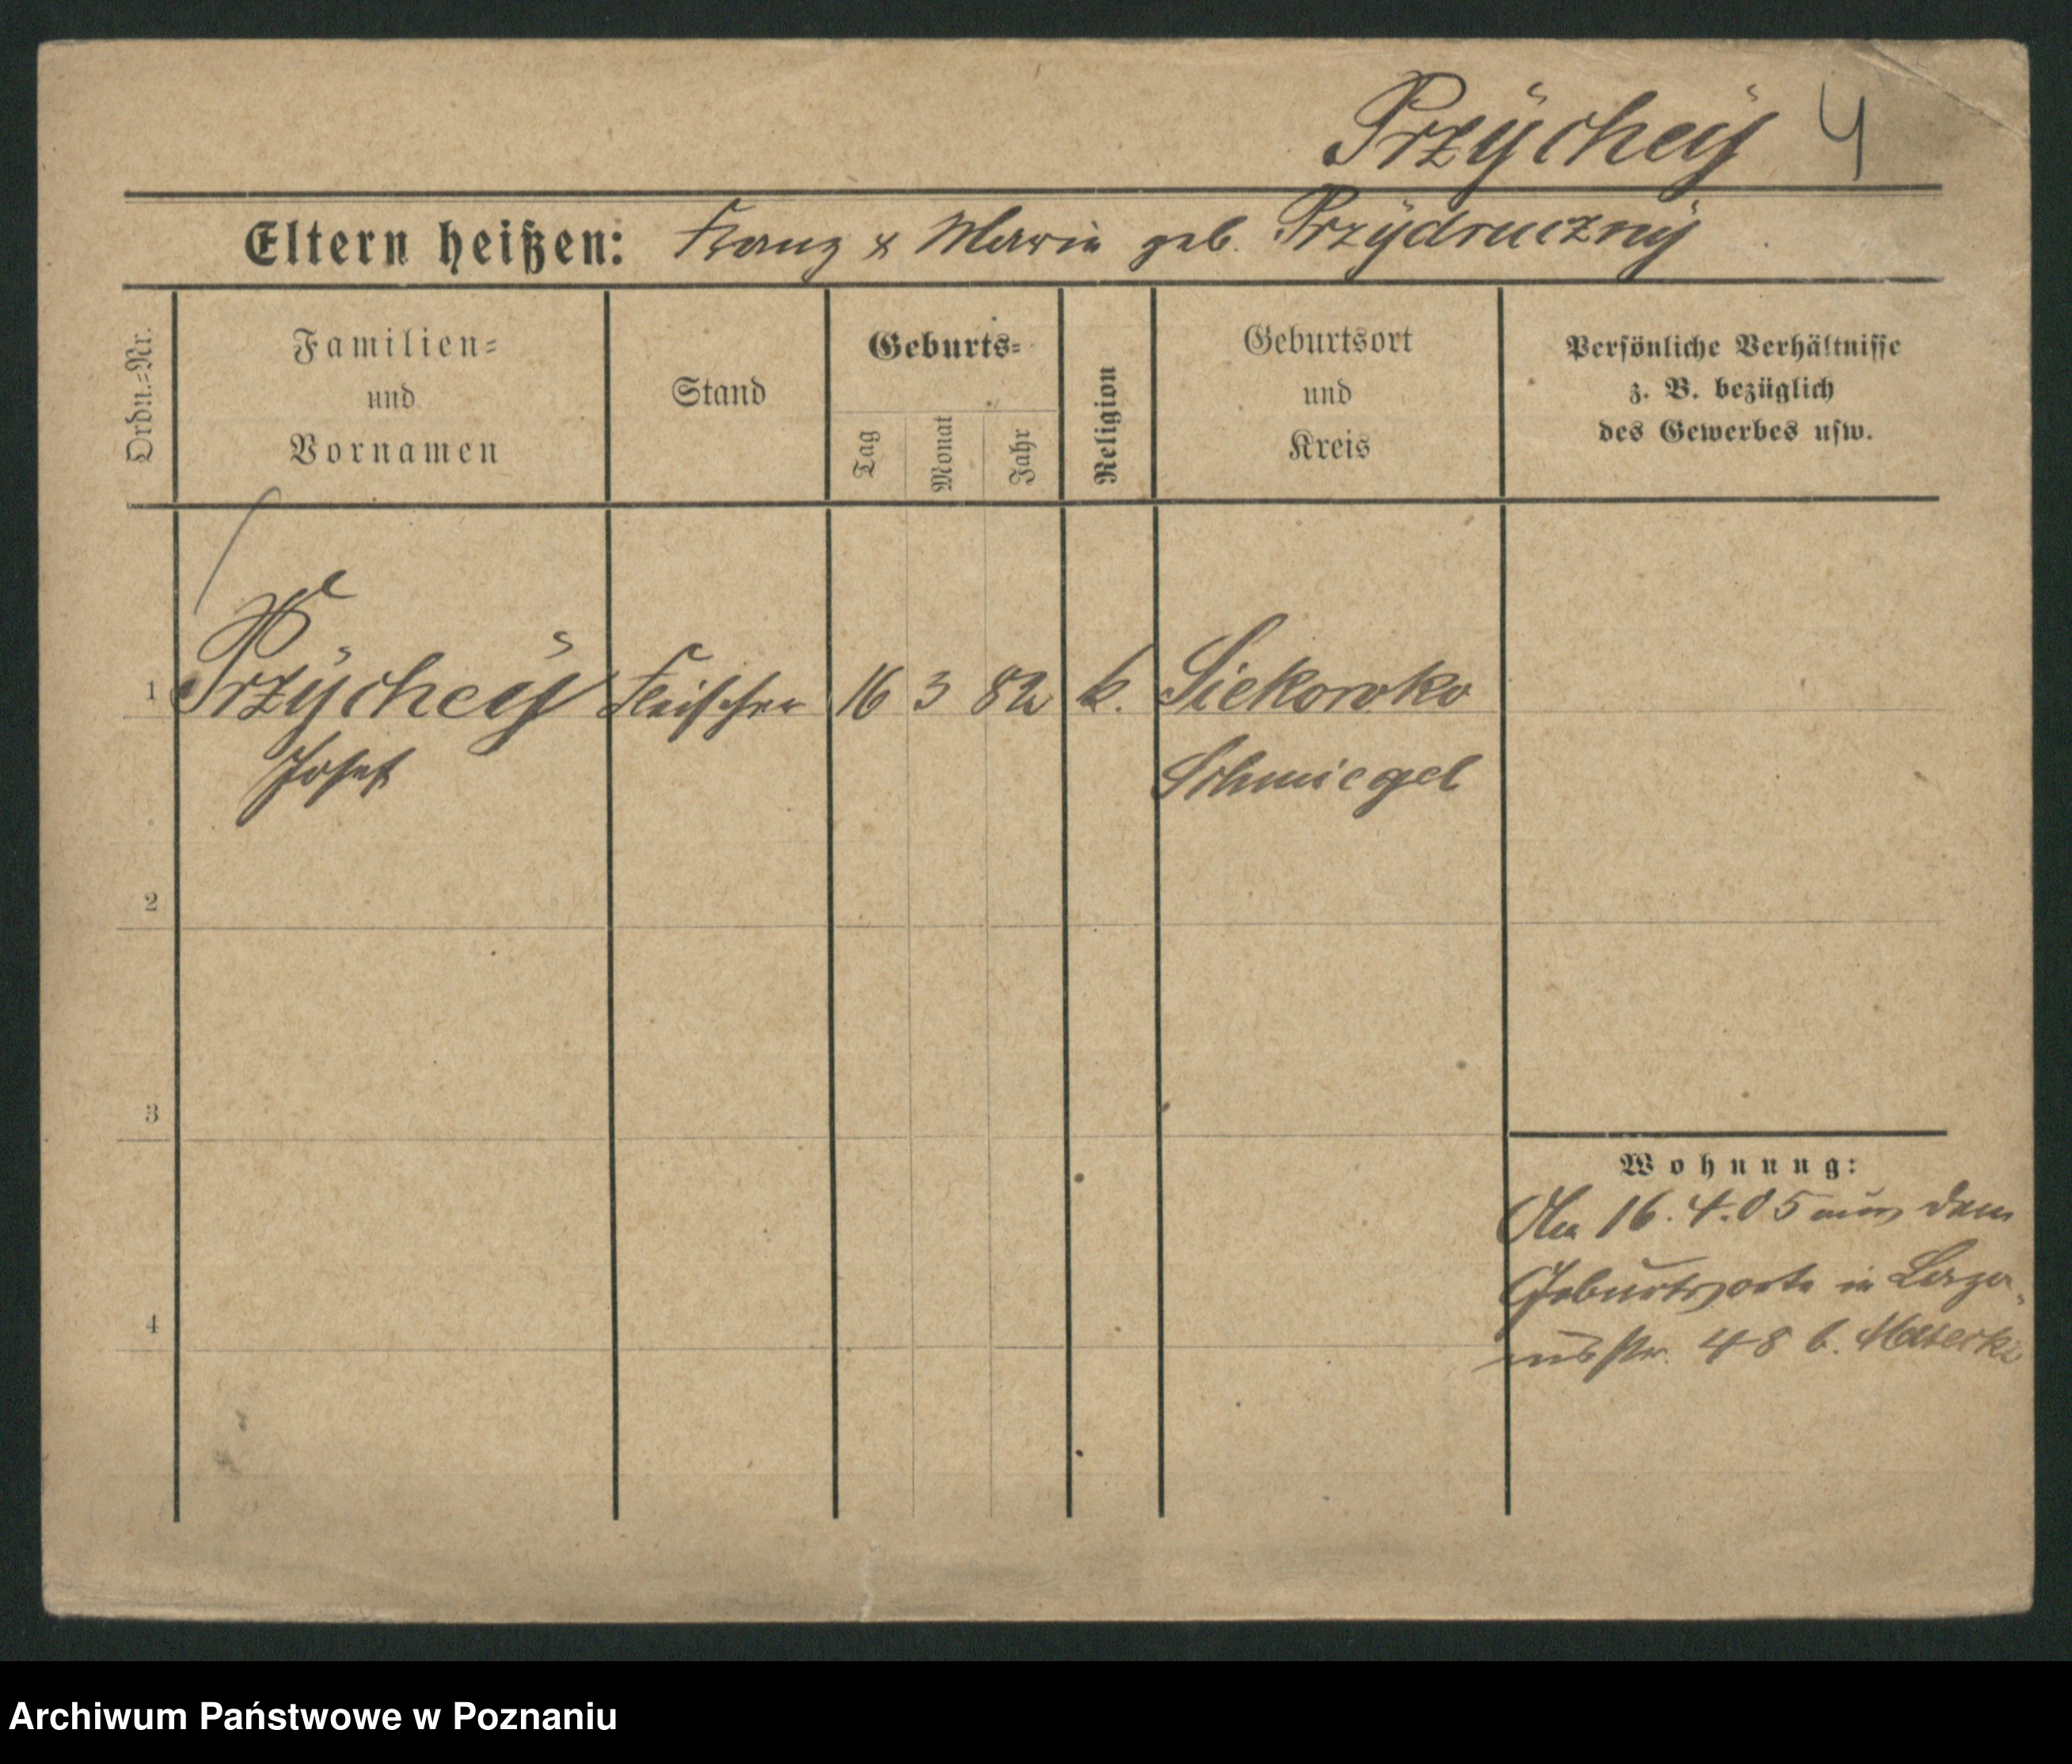 Przÿcheÿ 4
Eltern heißen: Franz & Maria geb. Przÿdrucznÿ
Ordn.=Nr.
Familien=
und
Vornamen
Stand
Geburts=
Tag
Monat
Jahr
Religion
Geburtsort
und
Kreis
Persönliche Verhältnisse
z. B. bezüglich
des Gewerbes usw.
1 Przÿcheÿ Fleischer 16 3 82 k. Siekowko
Josef Schmiegel
2
3
Wohnung:
Am 16.4.05 aus dem
Geburtsorte in Laza-
4
russtr. 48 b.
Archiwum Państwowe w Poznaniu